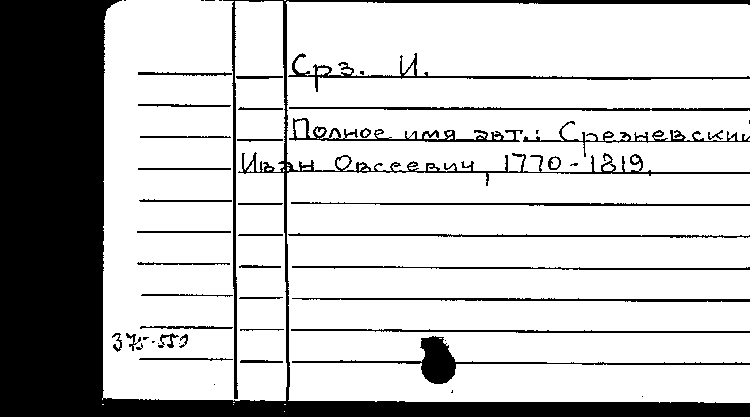 Срз. И.
Полное имя авт.: Срезневский
Иван Овсеевич, 1770-1819.
375-550